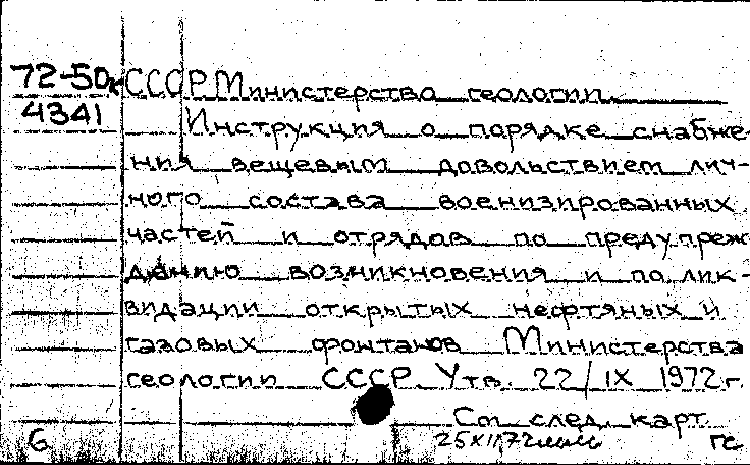 72-50к СССР. Министерство геологии.
4341 Инструкция о порядке снабже-
ния вещевым довольствием лич-
ного состава военизированных
частей и отрядов по предупреж
дению возникновения и по лик-
видации открытых нефтяных и
газовых фонтанов Министерства
геологии СССР. Утв. 22/IX 1972г.
См след. карт.
6 25 XII 72 гс